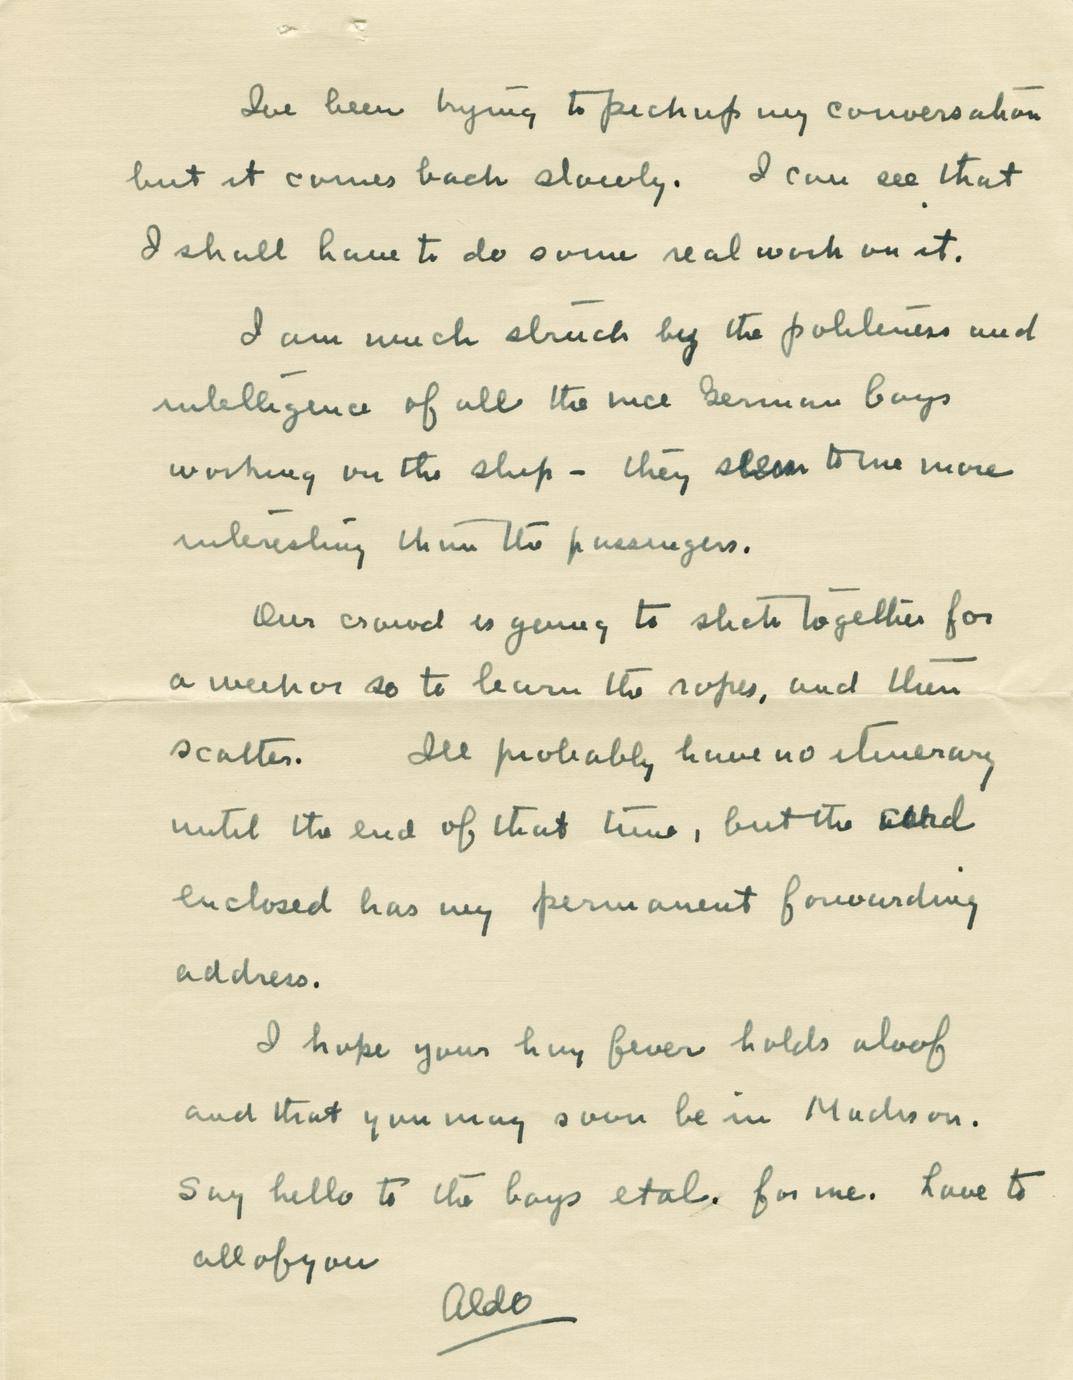 I've been trying to pick up my conversation
but it comes back slowly. I can see that
I shall have to do some real work on it.
I am much struck by the politeness and
intelligence of all the nice German boys
working on the ship - they seem to me more
interesting than the passengers.
Our crowd is going to stick together for
a week or so to learn the ropes, and then
scatter. I'll probably have no itinerary
until the end of that time, but the card
enclosed has my permanent forwarding
address.
I hope your hay fever holds aloof
and that you may soon be in Madison.
Say hello to the boys et al. for me. Love to
all of you
Aldo